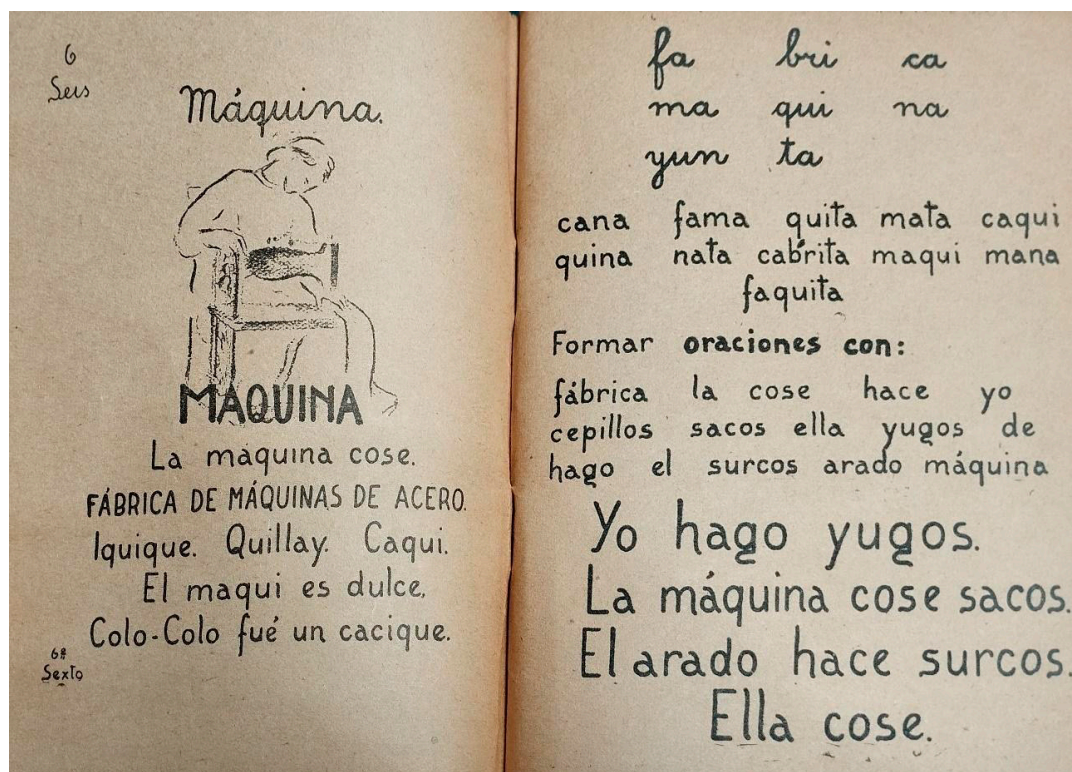 6
Seis
Máquina.
MAQUINA
La maquina cose.
FÁBRICA DE MÁQUINAS DE ACERO.
Iquique. Quillay. Caqui.
El maqui es dulce,
Colo-Colo fué un cacique.
6º
Sexto
fa bri ca
ma qui na
yun ta
cana fama quita mata caqui
quina nata cabrita maqui mana
faquita
Formar oraciones con:
fábrica la cose hace yo
cepillos sacos ella yugos de
hago el surcos arado máquina
Yo hago yugos.
La máquina cose sacos.
El arado hace surcos.
Ella cose.